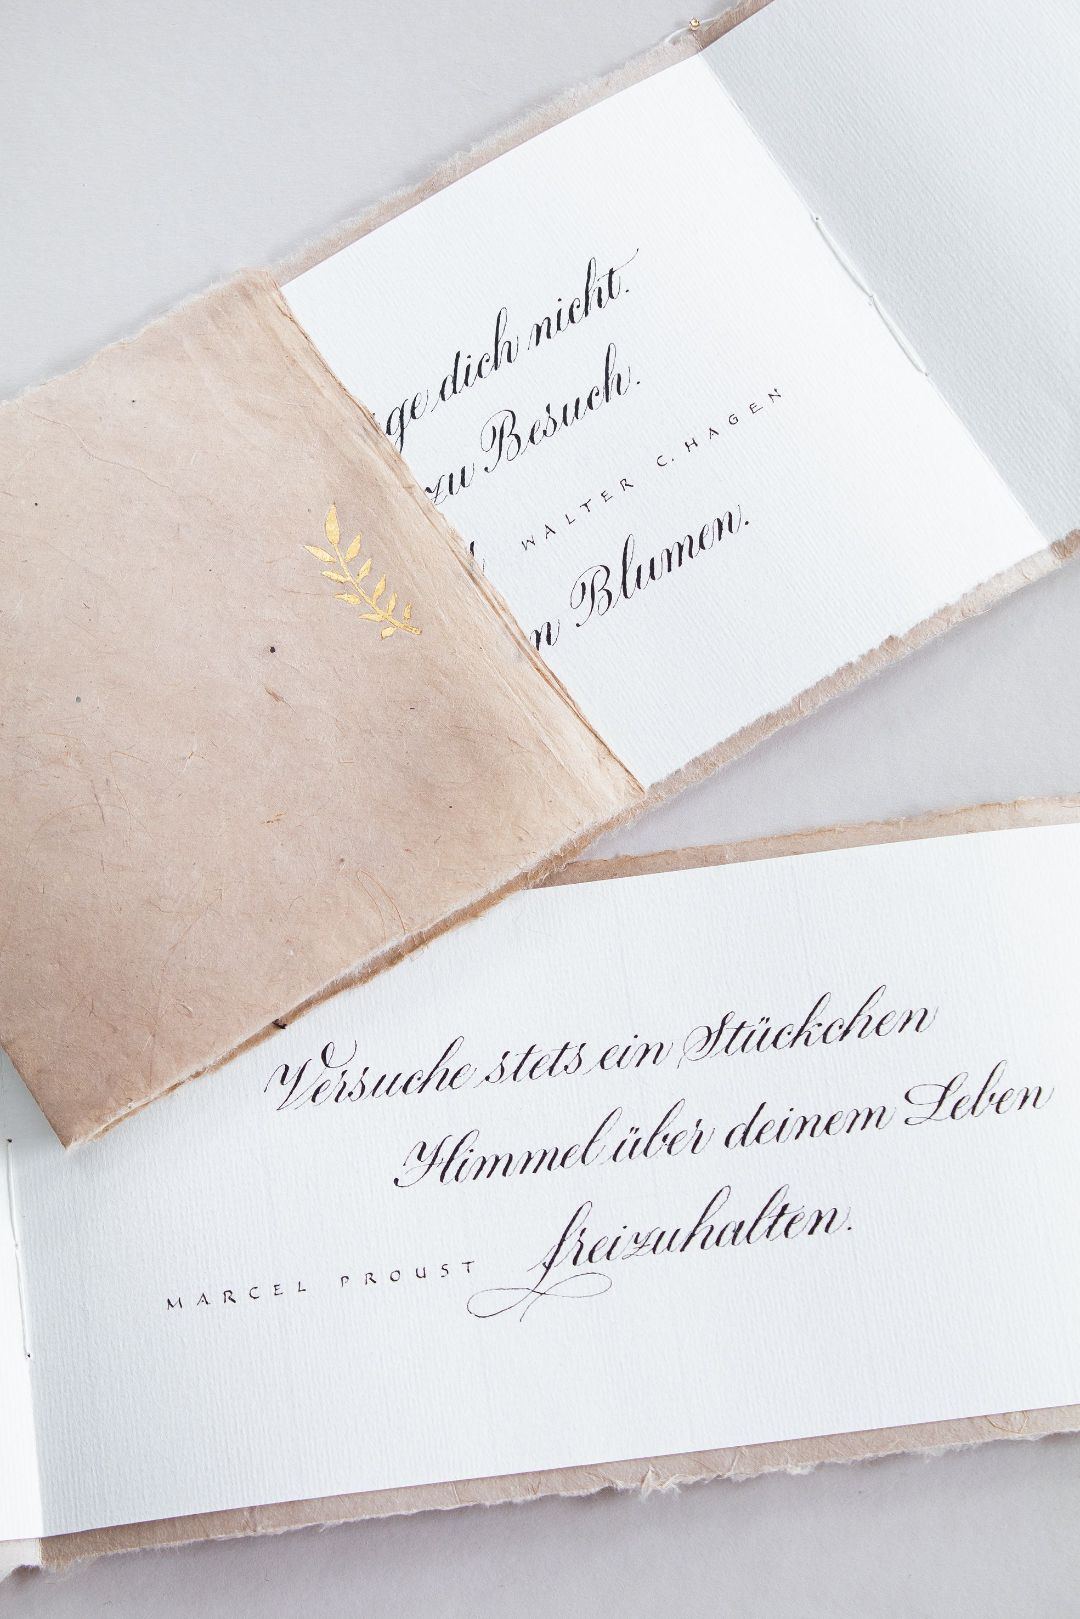 dich nicht.
zu Besuch.
WALTER C. HAGEN
Blumen.
Versuche stets ein Stückchen
Himmel über deinem Leben
freizuhalten.
MARCEL PROUST